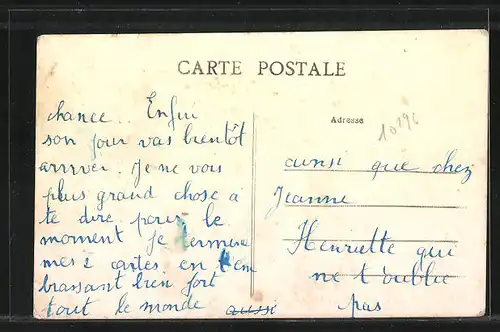 CARTE POSTALE
Adresse
10196
chance.. Enfui
son jour vas bientôt
arrrver. Je ne vois
plus grand chose a
te dire pour le
moment Je termine
mes 2 cartes en t'em
brassant bien fort
tout le monde aussi
ainsi que chez
Jeanne
Henriette qui
ne t'oublie
pas